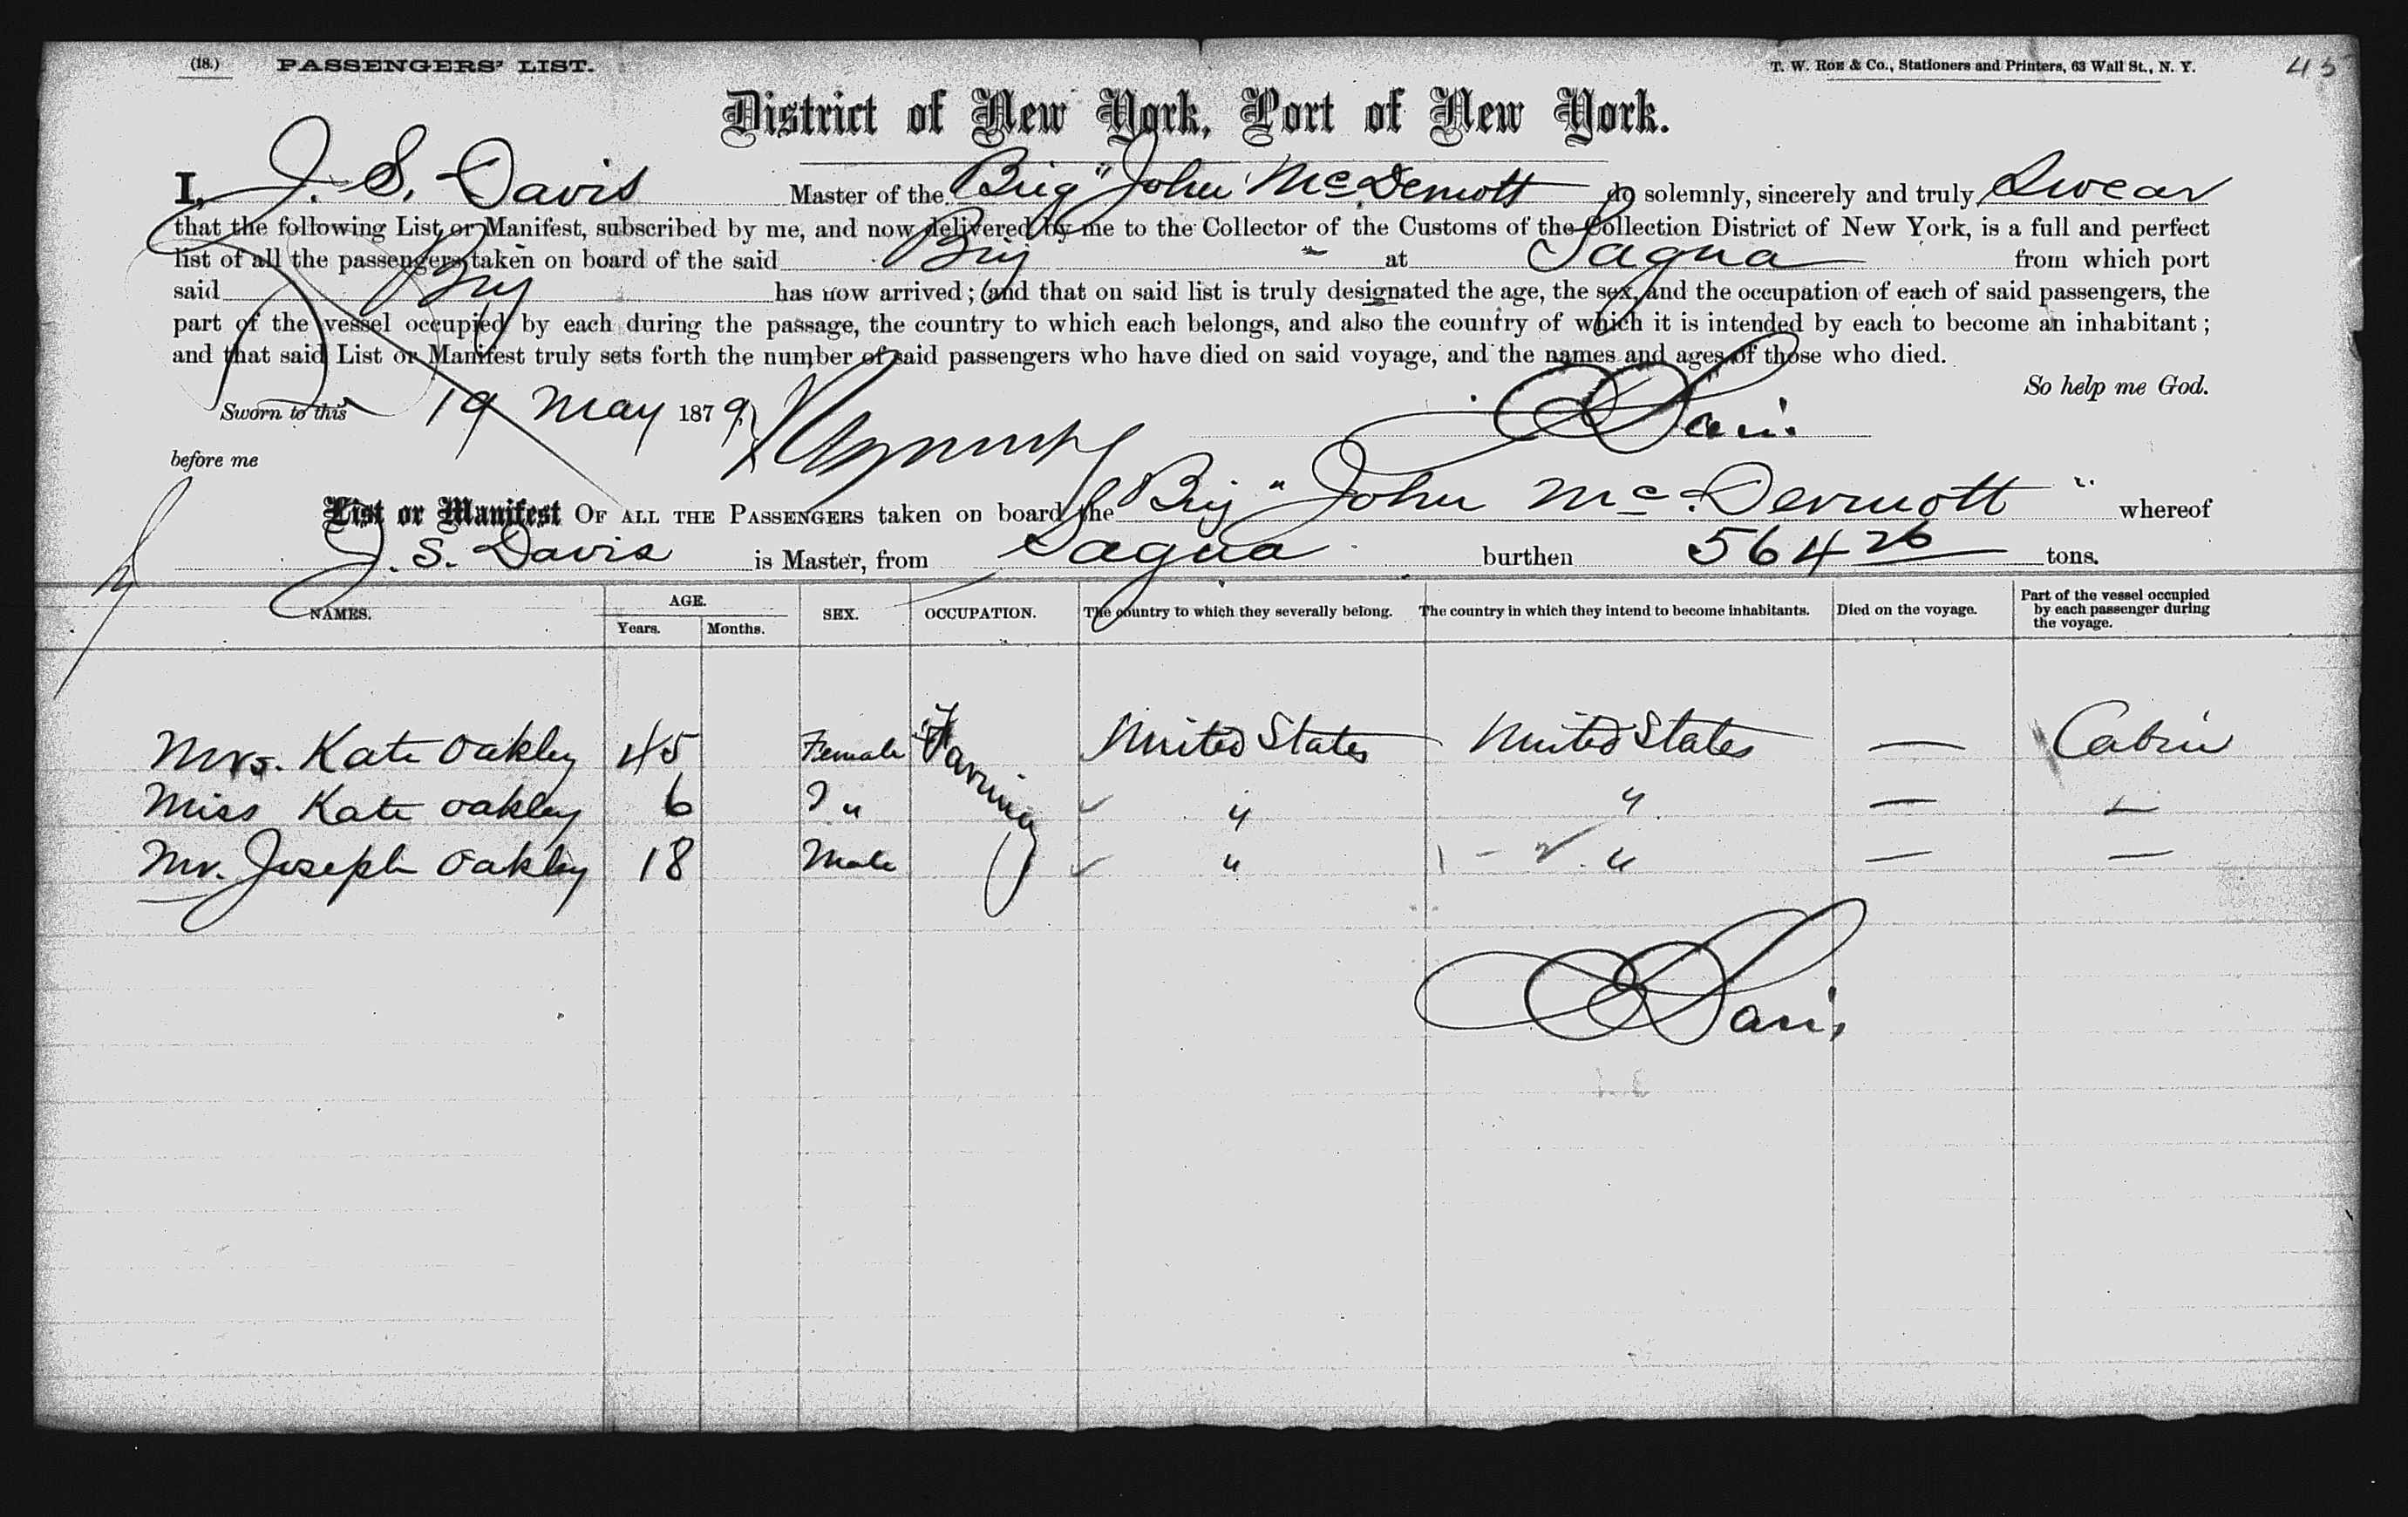 (18.) PASSENGERS' LIST. T. W. Roe & Co., Stationers and Printers, 63 Wall St., N. Y. 45
District of New York, Port of New York.
I, J. S. Davis Master of the Brig "John McDermott do solemnly, sincerely and truly Swear
that the following List or Manifest, subscribed by me, and now delivered by me to the Collector of the Customs of the Collection District of New York, is a full and perfect
list of all the passengers taken on board of the said Brig " at Sagua from which port
said Brig has now arrived; and that on said list is truly designated the age, the sex, and the occupation of each of said passengers, the
part of the vessel occupied by each during the passage, the country to which each belongs, and also the country of which it is intended by each to become an inhabitant;
and that said List or Manifest truly sets forth the number of said passengers who have died on said voyage, and the names and ages of those who died.
So help me God.
Sworn to this 19 May 1879 Davis
before me
List or Manifest OF ALL THE PASSENGERS taken on board the Brig "John McDermott" whereof
J. S. Davis is Master, from Sagua burthen 564 26 tons.
NAMES. AGE. Years. Months. SEX. OCCUPATION. The country to which they severally belong. The country in which they intend to become inhabitants. Died on the voyage. Part of the vessel occupied by each passenger during the voyage.
Mrs. Kate Oakley 45 Female United States United States — Cabin
Miss Kate Oakley 6 " " " — —
Mr. Joseph Oakley 18 Male " " — —
Davis